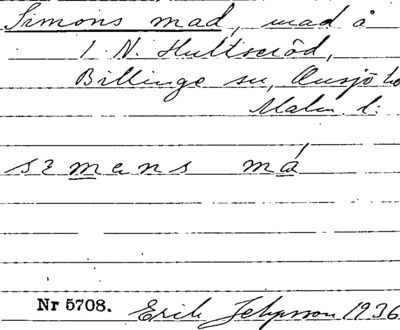 Simons mad, mad å
1 N. Hultseröd,
Billinge sn, Onsjö
Malm. l:
sımens má
Nr 5708. Erik Jeppsson 1936